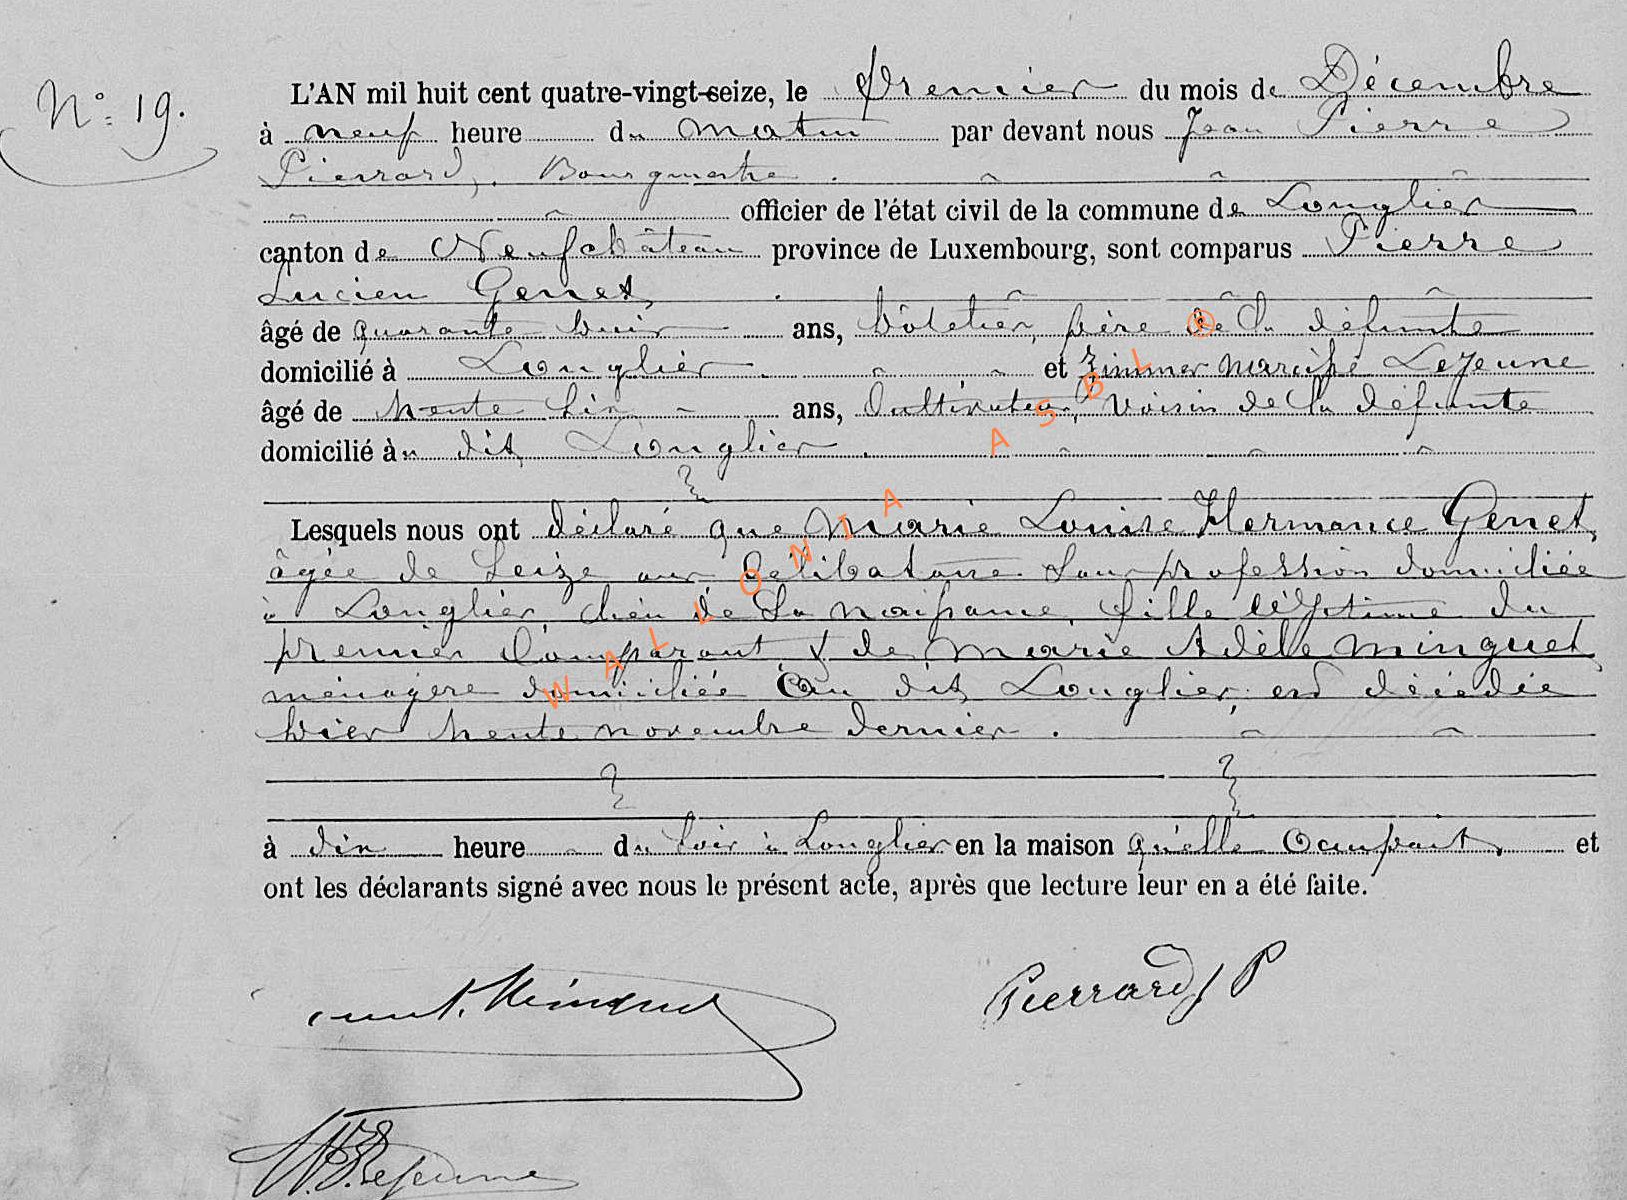 N° 19.
L'AN mil huit cent quatre-vingt-seize, le premier du mois de Décembre
à neuf heure du matin par devant nous Jean Pierre
Pierrard, Bourgmestre.
officier de l'état civil de la commune de Longlier
canton de Neufchâteau province de Luxembourg, sont comparus Pierre
Lucien Genet,
âgé de quarante huit ans, hôtelier, père de la défunte
domicilié à Longlier et Zimmer Narcisse Lejeune
âgé de trente six ans, Cultivateur, voisin de la défunte
domicilié au dit Longlier.
Lesquels nous ont déclaré que Marie Louise Hermance Genet,
âgée de seize ans célibataire sans profession domiciliée
à Longlier, lieu de sa naissance, fille légitime du
premier Comparant & de Marie Adèle Minguet,
ménagère domiciliée au dit Longlier, est décédée
hier trente novembre dernier.
à dix heure du soir à Longlier en la maison qu'elle occupait, et
ont les déclarants signé avec nous le présent acte, après que lecture leur en a été faite.
Pierrard J P
Lejeune
WALLONIA ASBL ®